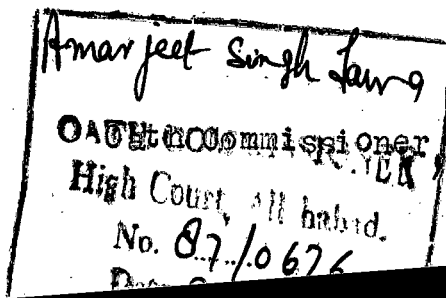 Amarjeet Singh
OATH Commissioner,
High Court, All habad.
No. 87/0676